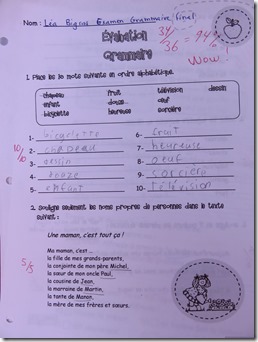 Nom : Léa Bigras Examen Grammaire final
34/36 = 94% !
WOW!
Évaluation
Grammaire
1. Place les 10 mots suivants en ordre alphabétique.
chapeau fruit télévision dessin
enfant douze oeuf
bicyclette heureuse sorcière
10/10
1- bicyclette 6- fruit
2- chapeau 7- heureuse
3- dessin 8- oeuf
4- douze 9- sorcière
5- enfant 10- télévision
2. Souligne seulement les noms propres de personnes dans le texte
suivant :
Une maman, c'est tout ça !
5/5
Ma maman, c'est...
la fille de mes grands-parents,
la conjointe de mon père Michel,
la sœur de mon oncle Paul,
la cousine de Jean,
la marraine de Martin,
la tante de Manon,
la mère de mes frères et sœurs.